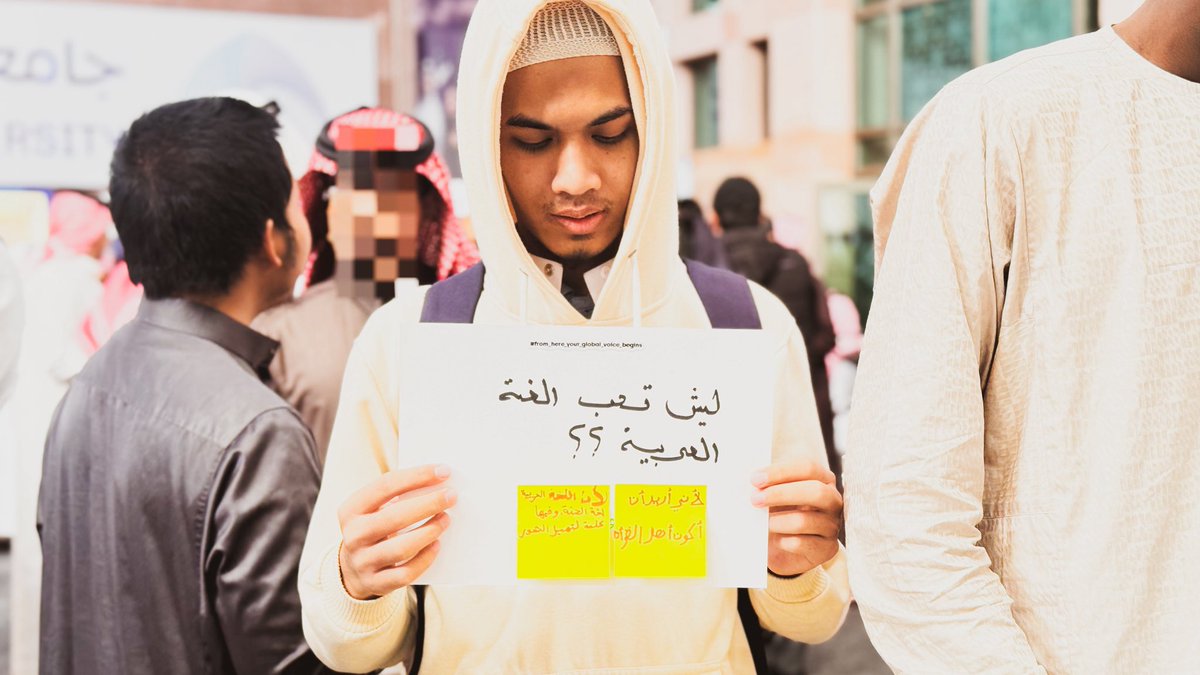 جامعـ
ERSITY
#from_here_your_global_voice_begins
ليش تحب الغة
العربية ؟؟
لأني أريد أن
أكون أهل القرآن
لأن اللغة العربية
لغة الجنة، وفيها